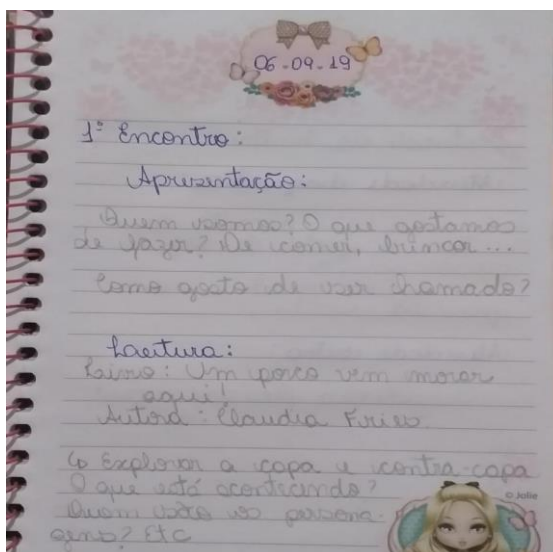 06-09-19
1º Encontro:
Apresentação:
Quem somos? O que gostamos
de fazer? De comer, brincar...
Como gosto de ser chamado?
Leitura:
Livro: Um porco vem morar
aqui!
Autora: Claudia Fries
↳ Explorar a capa e contra-capa
O que está acontecendo?
Quem são os persona-
gens? Etc
© Jolie